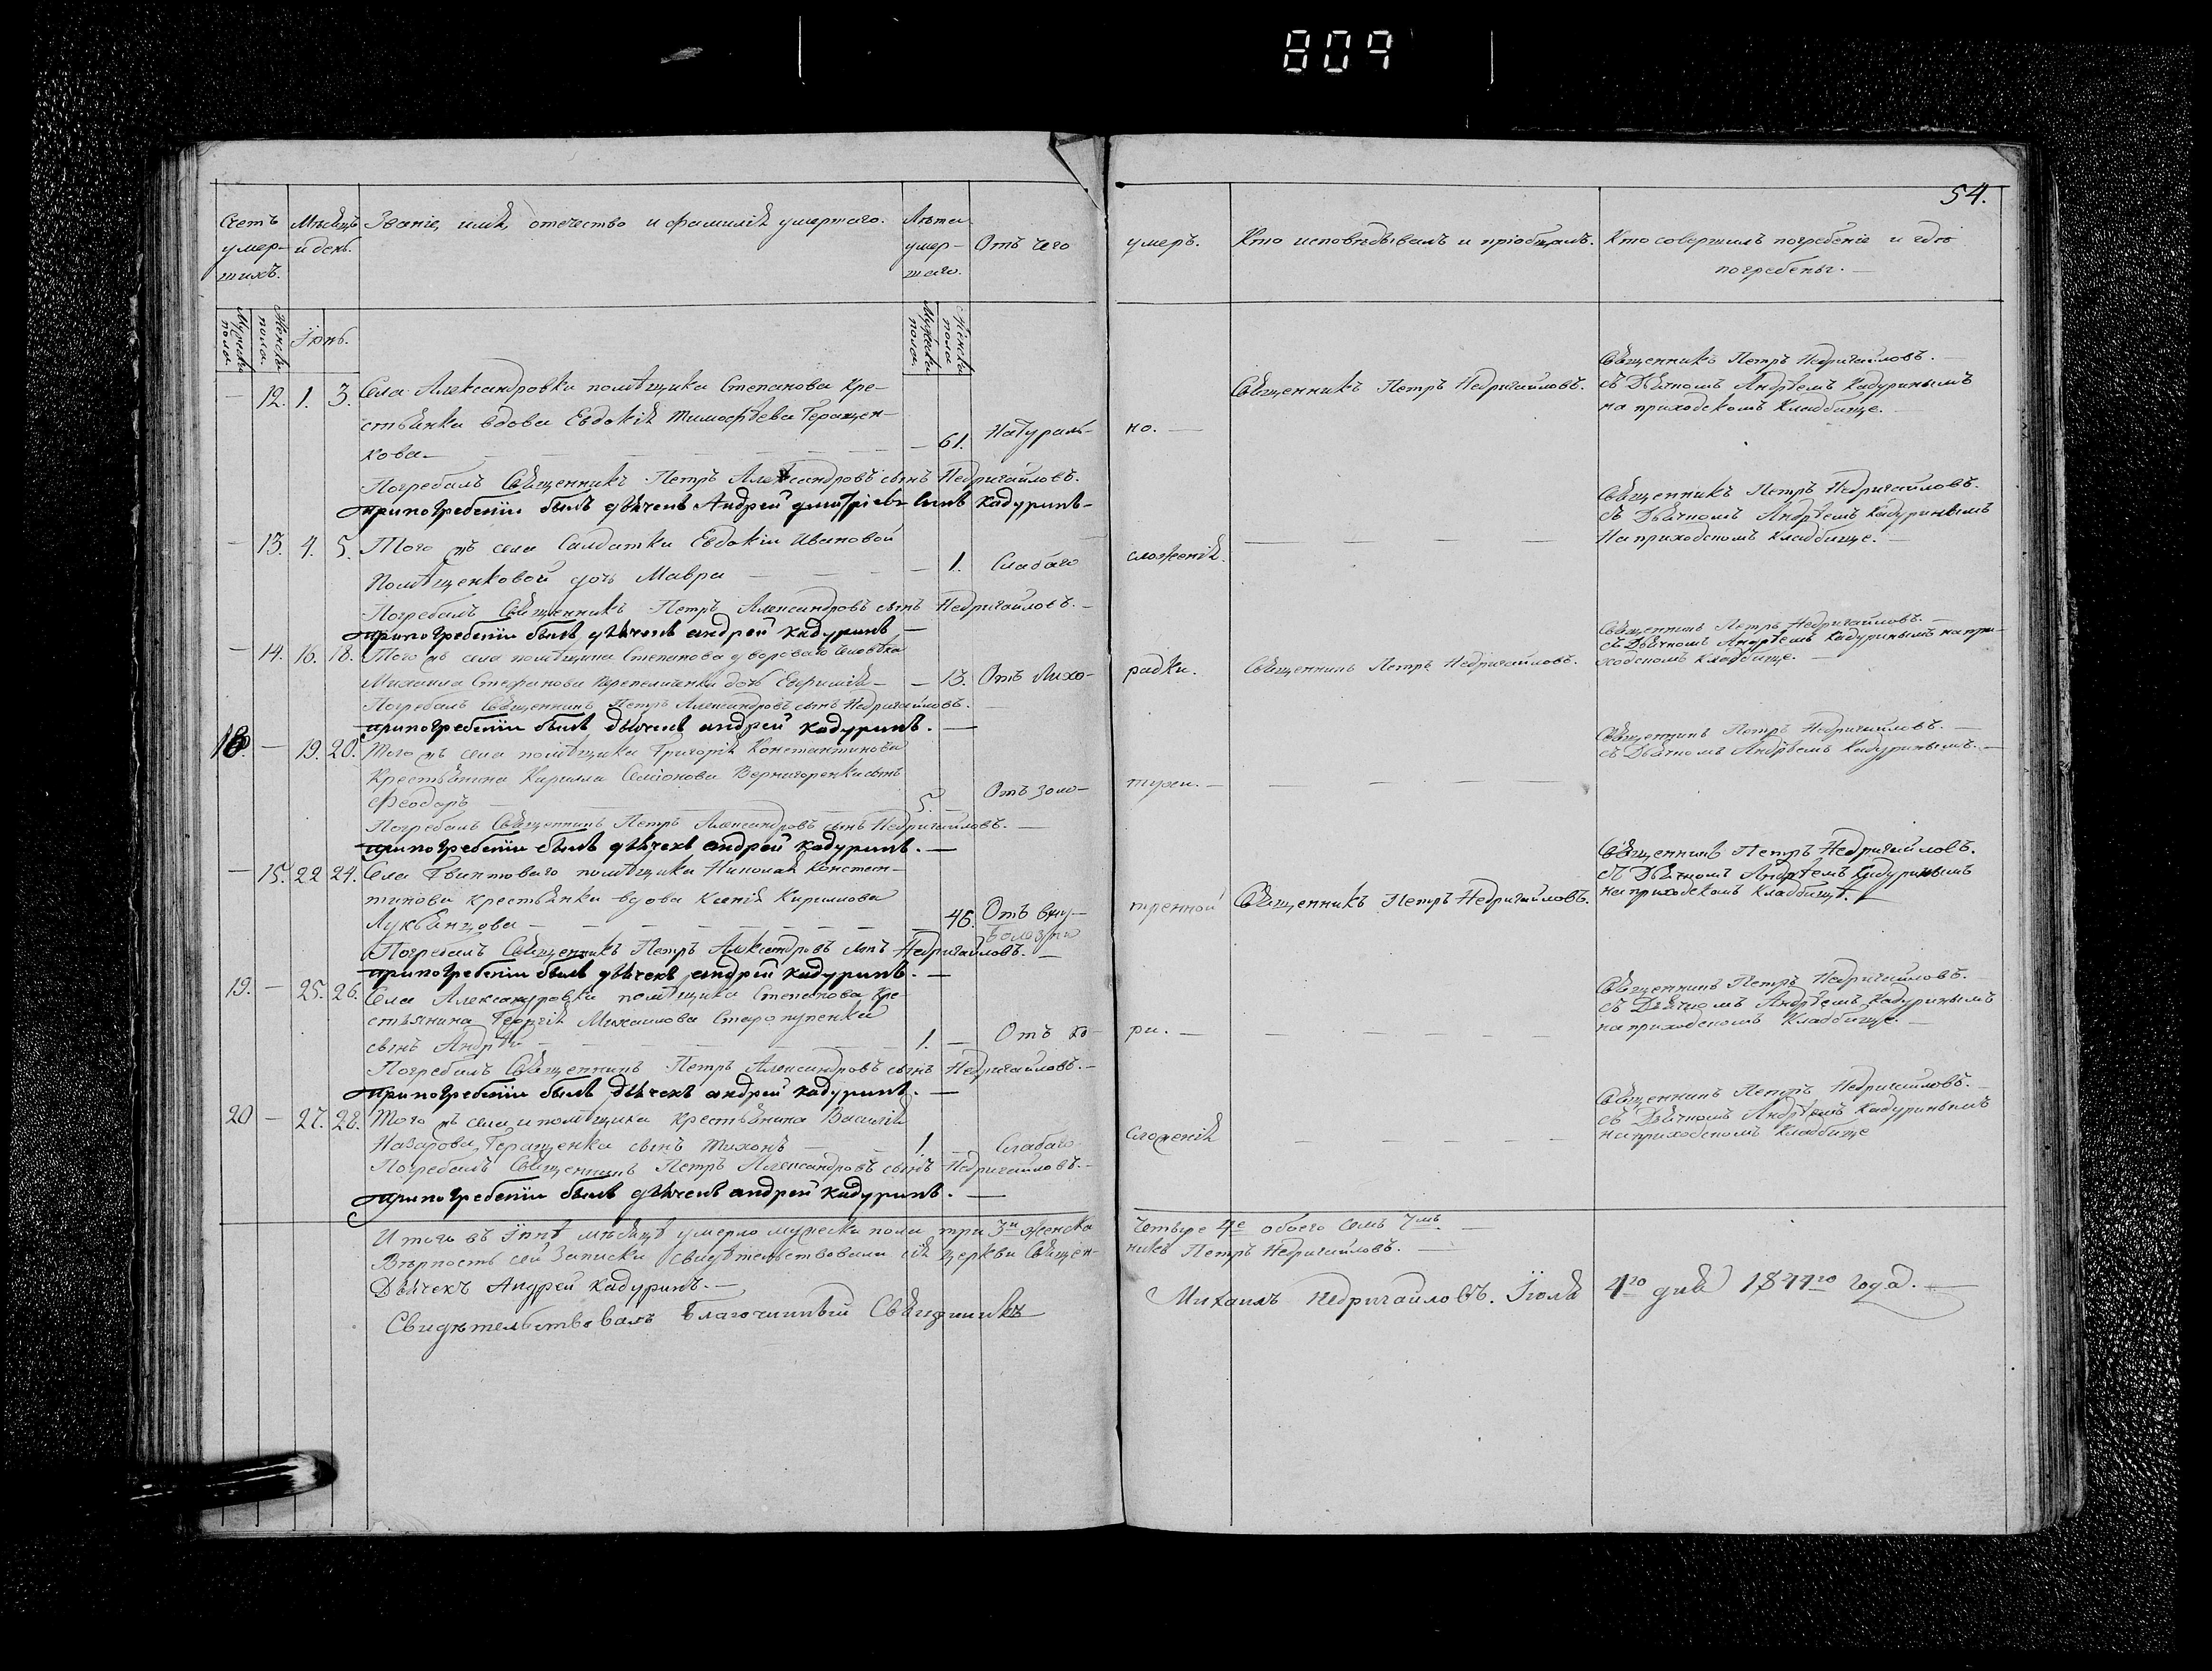 809
54.
Счетъ умер- шихъ.
Мѣсяцъ и день.
Званіе, имя, отечество и фамилія умершаго.
Лѣта умер- шаго.
Отъ чего умеръ.
Кто исповѣдывалъ и пріобщалъ.
Кто совершилъ погребеніе и гдѣ
погребены.
Мужска пола.
Женска пола.
Іюнь.
Мужска пола.
Женска пола
— 12. 1. 3. Села Александровки помѣщика Степанова кре-
стьянка вдова Евдокія Тимофѣева Геращен-
кова — 61. Натураль- но.
Священникъ Петръ Недригайловъ.
Священникъ Петръ Недригайловъ.
съ Дьячкомъ Андреемъ Кадуринымъ
на приходскомъ Кладбище.
Погребалъ Священникъ Петръ Александровъ сынъ Недригайловъ.
припогребеніи былъ дьячекъ Андрей Дмитріевъ сынъ Кадуринъ
— 13. 4. 5. Того жъ села Салдатки Евдокіи Ивановой
Помѣщенковой дочь Мавра — 1. Слабаго сложенія.
Священникъ Петръ Недригайловъ.
съ Дьячкомъ Андреемъ Кадуринымъ
На приходскомъ Кладбище.
Погребалъ Священникъ Петръ Александровъ сынъ Недригайловъ.
припогребеніи былъ дьячекъ андрей кадуринъ
— 14. 16. 18. Того жъ села помѣщика Степанова двороваго человѣка
Михаила Стефанова дочь Евфимія — 13. Отъ Лихо- радки.
Священникъ Петръ Недригайловъ.
Священникъ Петръ Недригайловъ.
съ Дьячкомъ Андреемъ Кадуринымъ на при-
ходскомъ Кладбище.
Погребалъ Священникъ Петръ Александровъ сынъ Недригайловъ.
припогребеніи былъ дьячекъ андрей кадуринъ.
18. — 19. 20. Того жъ села помѣщика Григорія Константинова
Крестьянина Кирилла Семіонова Вернигоренки сынъ
Феодоръ 5. — Отъ золо- тухи.
Священникъ Петръ Недригайловъ.
съ Дьячкомъ Андреемъ Кадуринымъ.
Погребалъ Священникъ Петръ Александровъ сынъ Недригайловъ.
припогребеніи былъ дьячекъ андрей кадуринъ.
— 15. 22 24. Села помѣщика Николая Констан-
тинова крестьянка вдова Ксенія Кирилова
Лукьянцова — 45. Отъ вну- тренной
болезни
Священникъ Петръ Недригайловъ.
Священникъ Петръ Недригайловъ.
съ Дьячкомъ Андреемъ Кадуринымъ
на приходскомъ Кладбищѣ.
Погребалъ Священникъ Петръ Александровъ сынъ Недригайловъ.
припогребеніи былъ дьячекъ андрей кадуринъ.
19. — 25. 26. Села Александровки помѣщика Степанова кре-
стьянина Георгія Михаилова
сынъ Андрей 1. — Отъ ко- ри.
Священникъ Петръ Недригайловъ.
съ Дьячкомъ Андреемъ Кадуринымъ
на приходскомъ Кладбище.
Погребалъ Священникъ Петръ Александровъ сынъ Недригайловъ.
припогребеніи былъ дьячекъ андрей кадуринъ.
20 — 27. 28. Того жъ села и помѣщика крестьянина Василія
Назарова Геращенка сынъ Тихонъ 1. — Слабаго Сложенія
Священникъ Петръ Недригайловъ.
съ Дьячкомъ Андреемъ Кадуринымъ
на приходскомъ Кладбище
Погребалъ Священникъ Петръ Александровъ сынъ Недригайловъ.
припогребеніи былъ дьячекъ андрей кадуринъ.
Итого въ Іюнѣ мѣсяцѣ умерло мужска пола три 3и женска четыре 4е обоего семь 7мь.
Вѣрность сей Записки Свидѣтельствовали сія церкви Священ- никъ Петръ Недригайловъ.
Дьячекъ Андрей Кадуринъ.
Свидѣтельствовалъ Благочинный Священникъ Михаилъ Недригайловъ. Іюля 4го дня 1844го года.